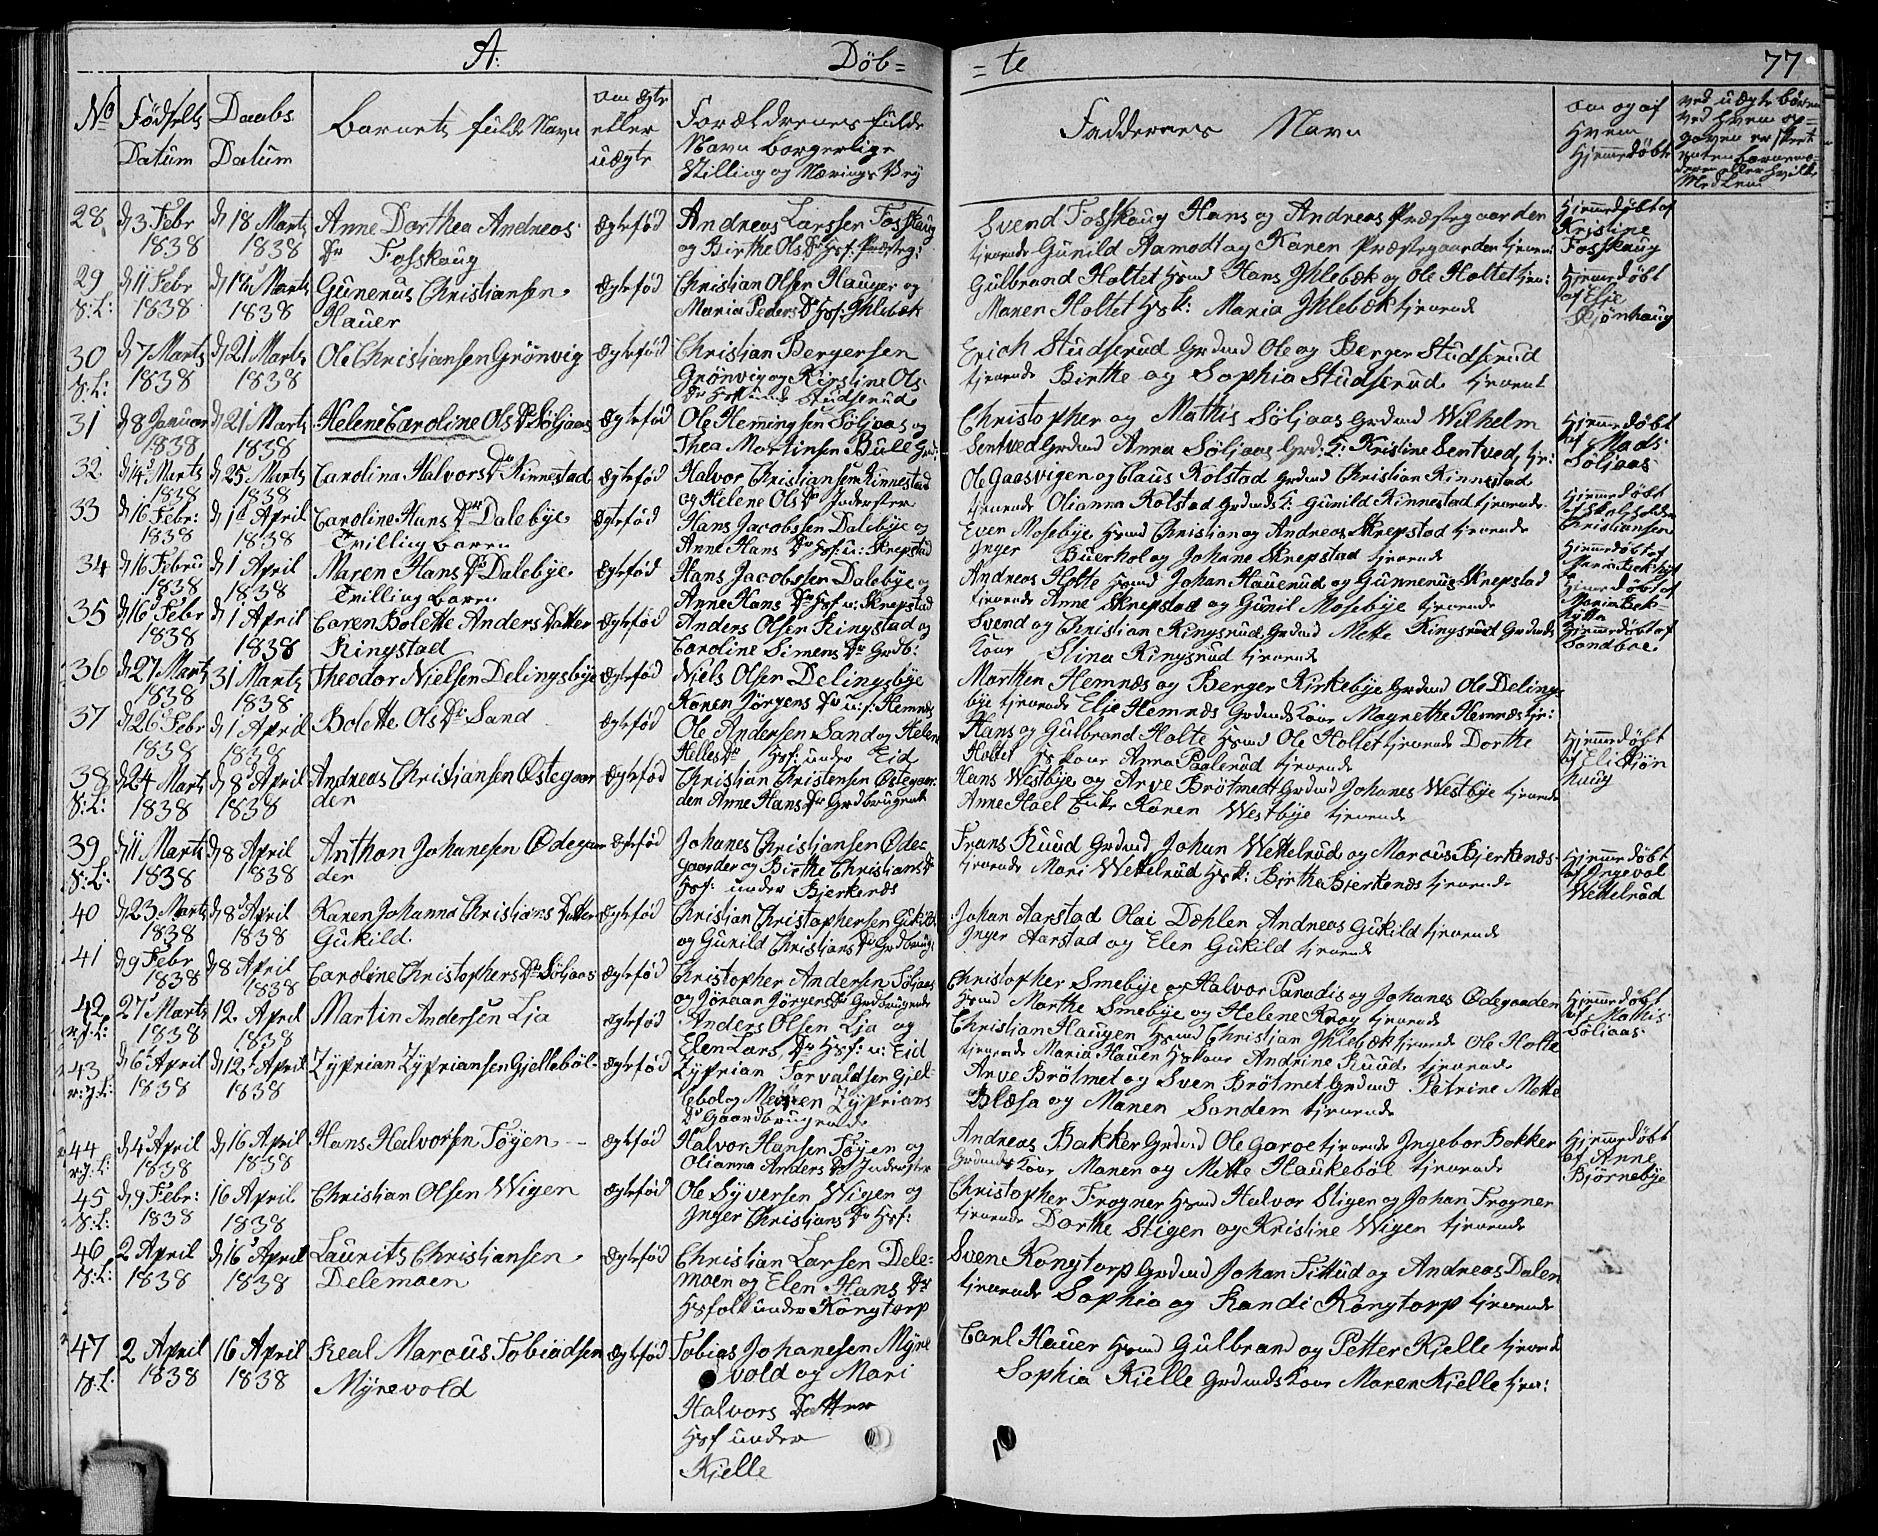 A: Döb= =te 77
No Födsels Datum Daabs Datum Barnets fulde Navn om ægte eller uægte Forældrenes fulde Navn borgerlige Stilling og Nærings Vej Faddernes Navn om og af Hvem Hjemmedöbt
28 d 3 Febr 1838 d 18 Marts 1838 Anne Dorthea Andreas Dr Fosskaug Ægtefød Andreas Larssen Fosskaug og Birthe Ols Dr Hsf: Præsteg: Svend Fosskaug Hans og Andreas Præstegaarden tjenende Gunild Aamodt og Karen Præstegaarden tjenen: Hjemmedöbt af Kristine Fosskaug
29 S:L: d 11 Febr 1838 d 18 Marts 1838 Gunerus Christiansen Hauer Ægtefød Christian Olsen Hauger og Maria Peders Dr Hsf: Ihlebæk Gulbrand Holtet Hsmd Hans Ihlebæk og Ole Holtet tjen: Maren Holtet Hsk: Maria Ihlebæk tjenende Hjemmedöbt af Elje Skjönhaug
30 S:L: d 7 Marts 1838 d 21 Marts 1838 Ole Christiansen Grönvig Ægtefød Christian Bergersen Grönvig og Kirstine Ols Dr Hsf under Studserud Erich Studserud Grdmd Ole og Berger Studserud tjenende Birthe og Sophia Studserud tjenende
31 d 8 Januar 1838 d 21 Marts 1838 Helene Caroline Ols Dr Söljaas Ægtefød Ole Hemmingsen Söljaas og Thea Martinsen Bull Grd: Christopher og Mathis Söljaas Grdmd Wilhelm Sentved Grdmd Anna Söljaas Grd: K: Kristine Sentved tje: Hjemmedöbt af Mads Söljaas
32 d 14 Marts 1838 d 25 Marts 1838 Carolina Halvors Dr Kinnestad Ægtefød Halvor Christiansen Kinnestad og Helene Ols Dr Inderster Ole Gaasvigen og Claus Kolstad Grdmd Christian Kinnestad tjenende Olianna Kolstad Grdmds K: Gunild Kinnestad tjenende
33 d 16 Febr: 1838 d 1 April 1838 Caroline Hans Dr Dalebye Trilling Barn Ægtefød Hans Jacobssen Dalebye og Anne Hans Dr Hsf: u: Skrepstad Even Mosebye Hsmd Christian og Andreas Skrepstad tjenende Inger Buerhol og Johanne Skrepstad tjenende Hjemmedöbt af Skoleholder Christiansen
34 d 16 Febru 1838 d 1 April 1838 Maren Hans Dr Dalebye Trilling Barn Ægtefød Hans Jacobssen Dalebye og Anne Hans Dr Hsf u: Skrepstad Andreas Holte Hsmd Johan Hauerud og Gunnerus Skrepstad tjenende Anne Skrepstad og Gunil Mosebye tjenende Hjemmedöbt af
35 d 16 Febr 1838 d 1 April 1838 Caren Bolette Anders Datter Ringstad Ægtefød Anders Olsen Ringstad og Caroline Simens Dr Grdb: Svend og Christian Ringsrud Grdmd Mette Ringsrud Grdmds Kone Stina Ringsrud tjenende Hjemmedöbt af Sandboe
36 d 27 Marts 1838 31 Marts 1838 Theodor Nielsen Delingsbye Ægtefød Niels Olsen Delingsbye Karen Jörgens Dr u: f: Hemnæs Marthen Hemnæs og Berger Kirkebye Grdmd Ole Delingsbye tjenende Elje Hemnæs Grdmds Kone Magnethe Hemnæs tje:
37 d 26 Febr 1838 d 1 April 1838 Bolette Ols Dr Sand Ægtefød Ole Andersen Sand og Helene Helles Dr Hsf: under Eid Hans og Gulbrand Holte Hsmd Ole Holtet tjenende Dorthe Holtet Hskone Anna Paalerud tjenende Hjemmedöbt af Eli Skjönhaug
38 S:L: d 24 Marts 1838 d 8 April 1838 Andreas Christiansen Östegaarden Ægtefød Christian Christensen Östegaarden Anne Hans Dr Grdbrugende Hans Westbye og Arve Brötmedt Grdmd Johanes Westbye tjenende Anne Hoel Enke Karen Westbye tjenende
39 S:L: d 11 Marts 1838 d 8 April 1838 Anthon Johanesen Ödegaarden Ægtefød Johanes Christiansen Ödegaarden og Birthe Christians Dr Hsf: under Bjerkenæs Frans Ruud Grdmd Johan Wettelrud og Marcus Bjerkenæs tjenende Mari Wettelrud Hsk: Birthe Bjerkenæs tjenende Hjemmedöbt af Ingeval Wettelrud
40 d 23 Marts 1838 d 8 April 1838 Karen Johanna Christians Datter Gukild Ægtefød Christian Christophersen Gukild og Gunild Christians Dr Grdbrug: Johan Aarstad Olai Dæhlen Andreas Gukild tjenende Inger Aarstad og Elen Gukild tjenende
41 d 9 Febr 1838 d 8 April 1838 Caroline Christophers Dr Söljaas Ægtefød Christopher Andersen Söljaas og Jöraan Jörgens Dr Grdbrugende Christopher Smebye og Halvor Paradis og Johanes Ödegaarden Hsmd Marthe Smebye og Helene Krog tjenende Hjemmedöbt af Mathis Söljaas
42 27 Marts 1838 12 April 1838 Martin Andersen Lja Ægtefød Anders Olsen Lja og Elen Lars Dr Hsf: u: Eid Christian Haugen Hsmd Christian Ihlebæk tjenende Ole Holte tjenende Maria Hauen Hskone Andrine Ruud tjenende
43 d 16 April 1838 d 12 April 1838 Zyprian Zypriansen Gjellebøl Ægtefød Zyprian Torvaldsen Gjellebøl og Maren Zyprians Dr Gaardbrugende Arve Brötmet og Sven Brötmet Grdmd Petrine Mette Blæsa og Maren Sandem tjenende
44 d 4 April 1838 d 16 April 1838 Hans Halvorsen Töyen Ægtefød Halvor Hansen Töyen og Olianna Anders Dr Inderster Andreas Bakker Grdmd Ole Garoe tjenende Ingebor Bakker Grdmds Kone Maren og Mette Haukebøl tjenende Hjemmedöbt af Anne Bjørnebye
45 S:L: d 9 Febr: 1838 16 April 1838 Christian Olsen Wigen Ægtefød Ole Syversen Wigen og Inger Christians Dr Hsf: Christopher Frogner Hsmd Halvor Stigen og Johan Frogner tjenende Dorthe Stigen og Kristine Wigen tjenende
46 S:L: 2 April 1838 d 16 April 1838 Laurits Christiansen Delemoen Ægtefød Christian Larsen Delemoen og Elen Hans Dr Hsfolk under Kongtorp Sven Kongtorp Grdmd Johan Tittud og Andreas Dalen tjenende Sophia og Randi Kongtorp tjenende
47 S:L: 2 April 1838 16 April 1838 Real Marcus Tobiadsen Myrevold Ægtefød Tobias Johanesen Myrevold og Mari Halvors Datter Hsf under Kjelle Carl Hauer Hsmd Gulbrand og Petter Kjelle tjenende Sophia Kielle Grdmds Kone Maren Kjelle tjen: